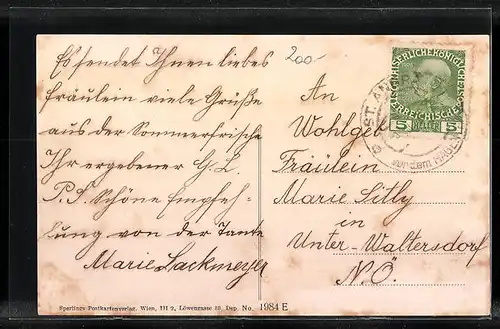 Es sendet Ihnen liebes
Fräulein viele Grüße
aus der Sommerfrische
Ihr ergebener G. L.
P. S. Schöne Empfeh-
lung von der Tante
Marie Lackmeyer
200-
An
Wohlgeb
Fräulein
Marie Sitly
in
Unter-Waltersdorf
N.Ö.
KAISERLICHE KÖNIGLICHE
ÖSTERREICHISCHE
5 HELLER 5
ST. AN
vor dem HAGE
Sperlings Postkartenverlag, Wien, III 2, Löwengasse Dep. No. 1984 E